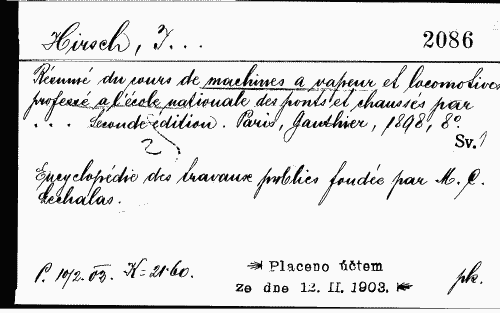 Hirsch, J...
2086
Résumé du cours de machines a vapeur et locomotives
professé a l'école nationale des ponts et chaussés par
... Seconde édition. Paris, Gauthier, 1898, 8°.
Sv. 1
2
Encyclopédie des travaux publics fondée par M. C.
Lechalas.
P. 10/2. 03. K=21·60.
Placeno účtem
ze dne 12. II. 1903.
pk.